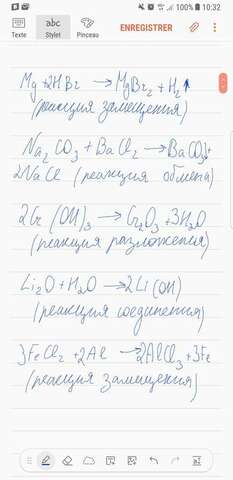 10:32
ENREGISTRER
Texte
abc
Stylet
Pinceau
Mg + 2HBr → MgBr₂ + H₂↑
(реакция замещения)
Na₂CO₃ + BaCl₂ → BaCO₃↓ +
2NaCl (реакция обмена)
2Cr(OH)₃ → Cr₂O₃ + 3H₂O
(реакция разложения)
Li₂O + H₂O → 2Li(OH)
(реакция соединения)
3FeCl₂ + 2Al → 2AlCl₃ + 3Fe
(реакция замещения)